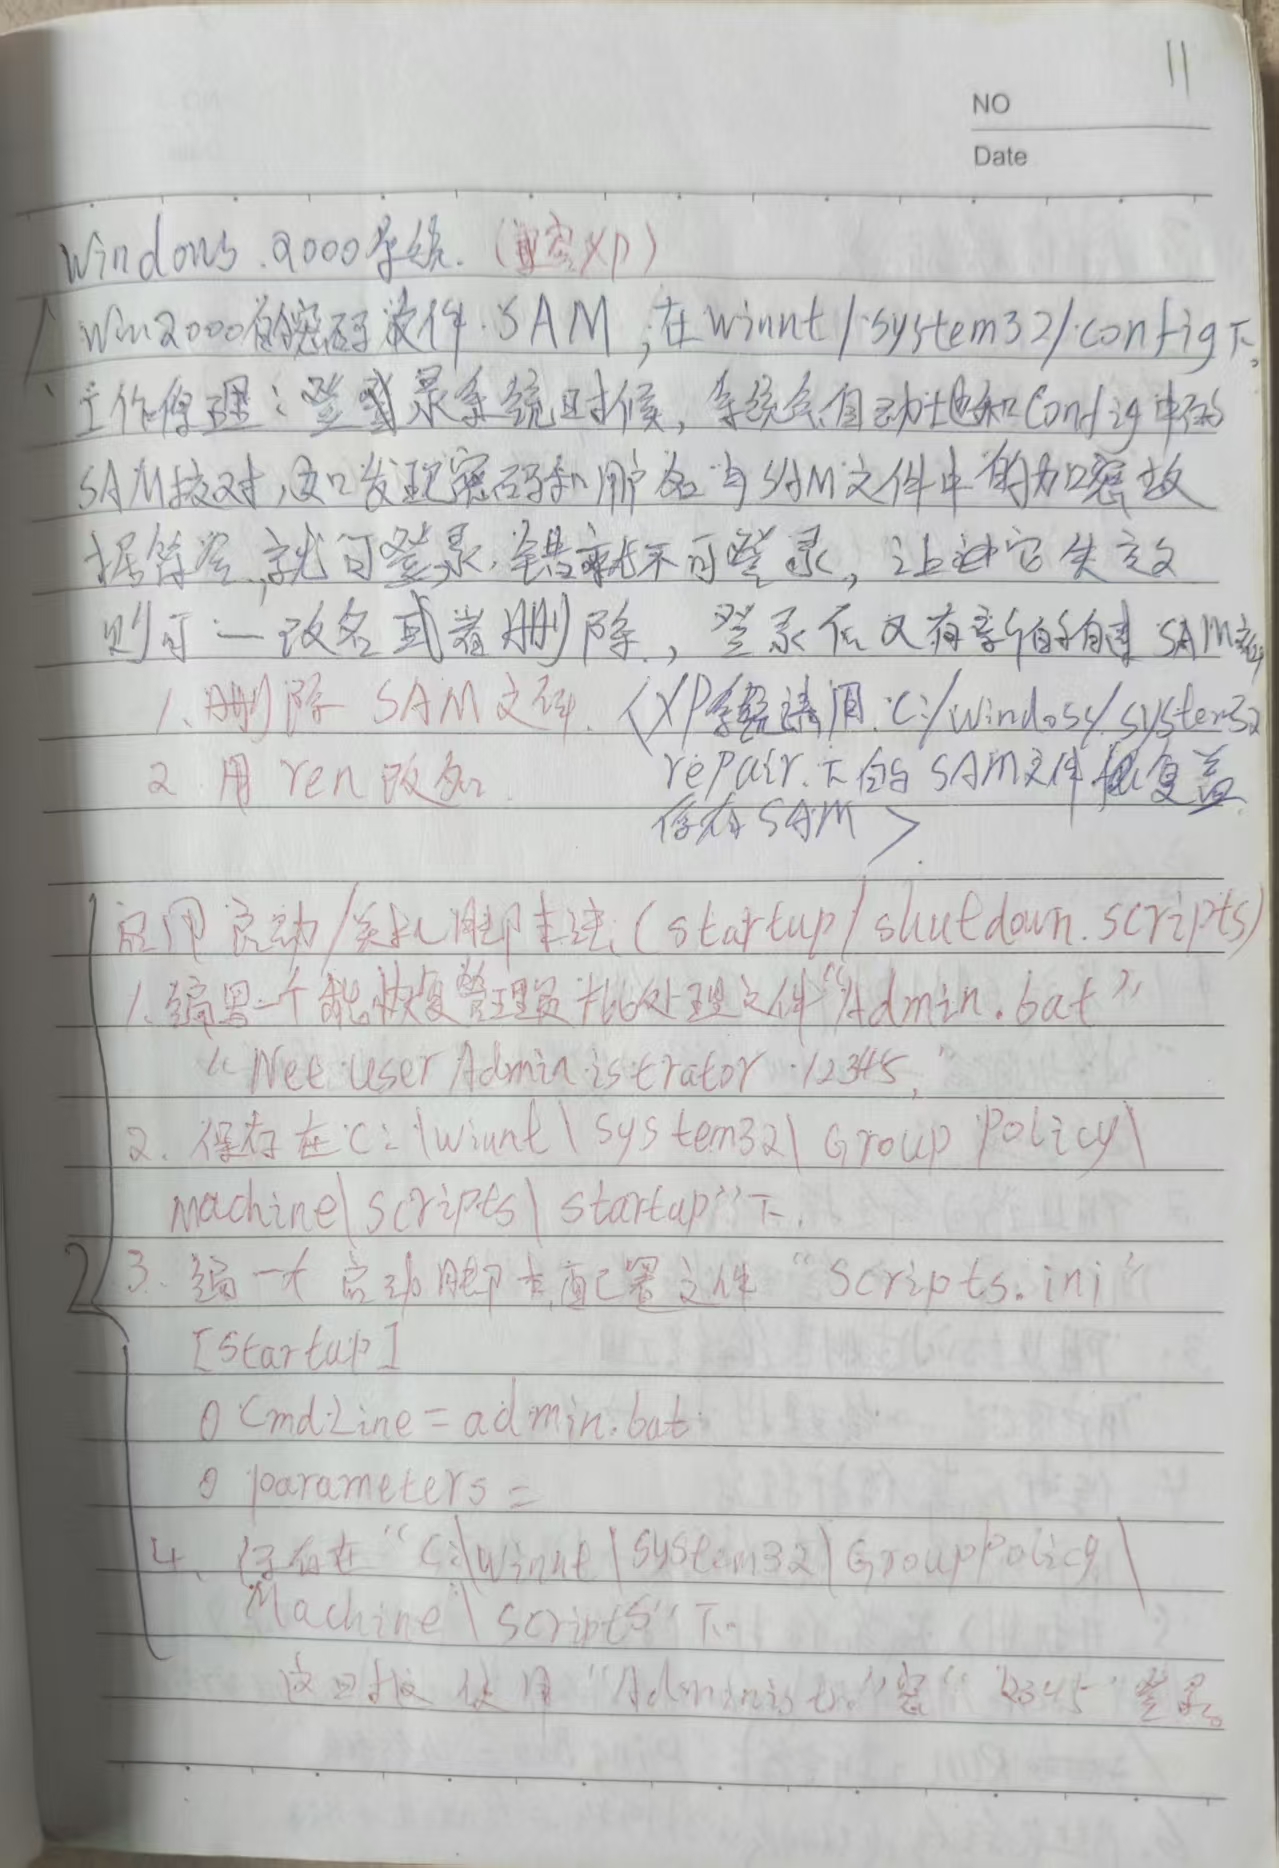 11
NO
Date
Windows 2000系统. (重密XP)
1、Win2000的密码文件.SAM,在winnt/system32/config下,
工作原理:登录系统时候,系统会自动地和Config中的
SAM核对,如发现密码和用户名与SAM文件中的加密数
据符合,就可登录.错就不可登录,让它失效
则可一改名或者删除,登录后又有新的自建SAM文件
1、删除 SAM文件.
2 用ren改名.
<XP系统请用.C:/Windosy/system32
repair.下的SAM文件 复盖
原有SAM>
2
启用启动/关机脚本法(startup/shutdown.scripts)
1.编写一个能恢复管理员批处理文件"Admin.bat"
"Net user Administrator 12345,"
2. 保存在C:\winnt\system32\Group Policy\
Machine\scripts\startup"下.
3. 编一个启动脚本配置文件 "Scripts.ini"
[Startup]
0 CmdLine=admin.bat
0 parameters=
4、保存在"C:\Winnt\system32\GroupPolicy\
Machine\scripts"下.
使用"Administr."密"12345"登录。